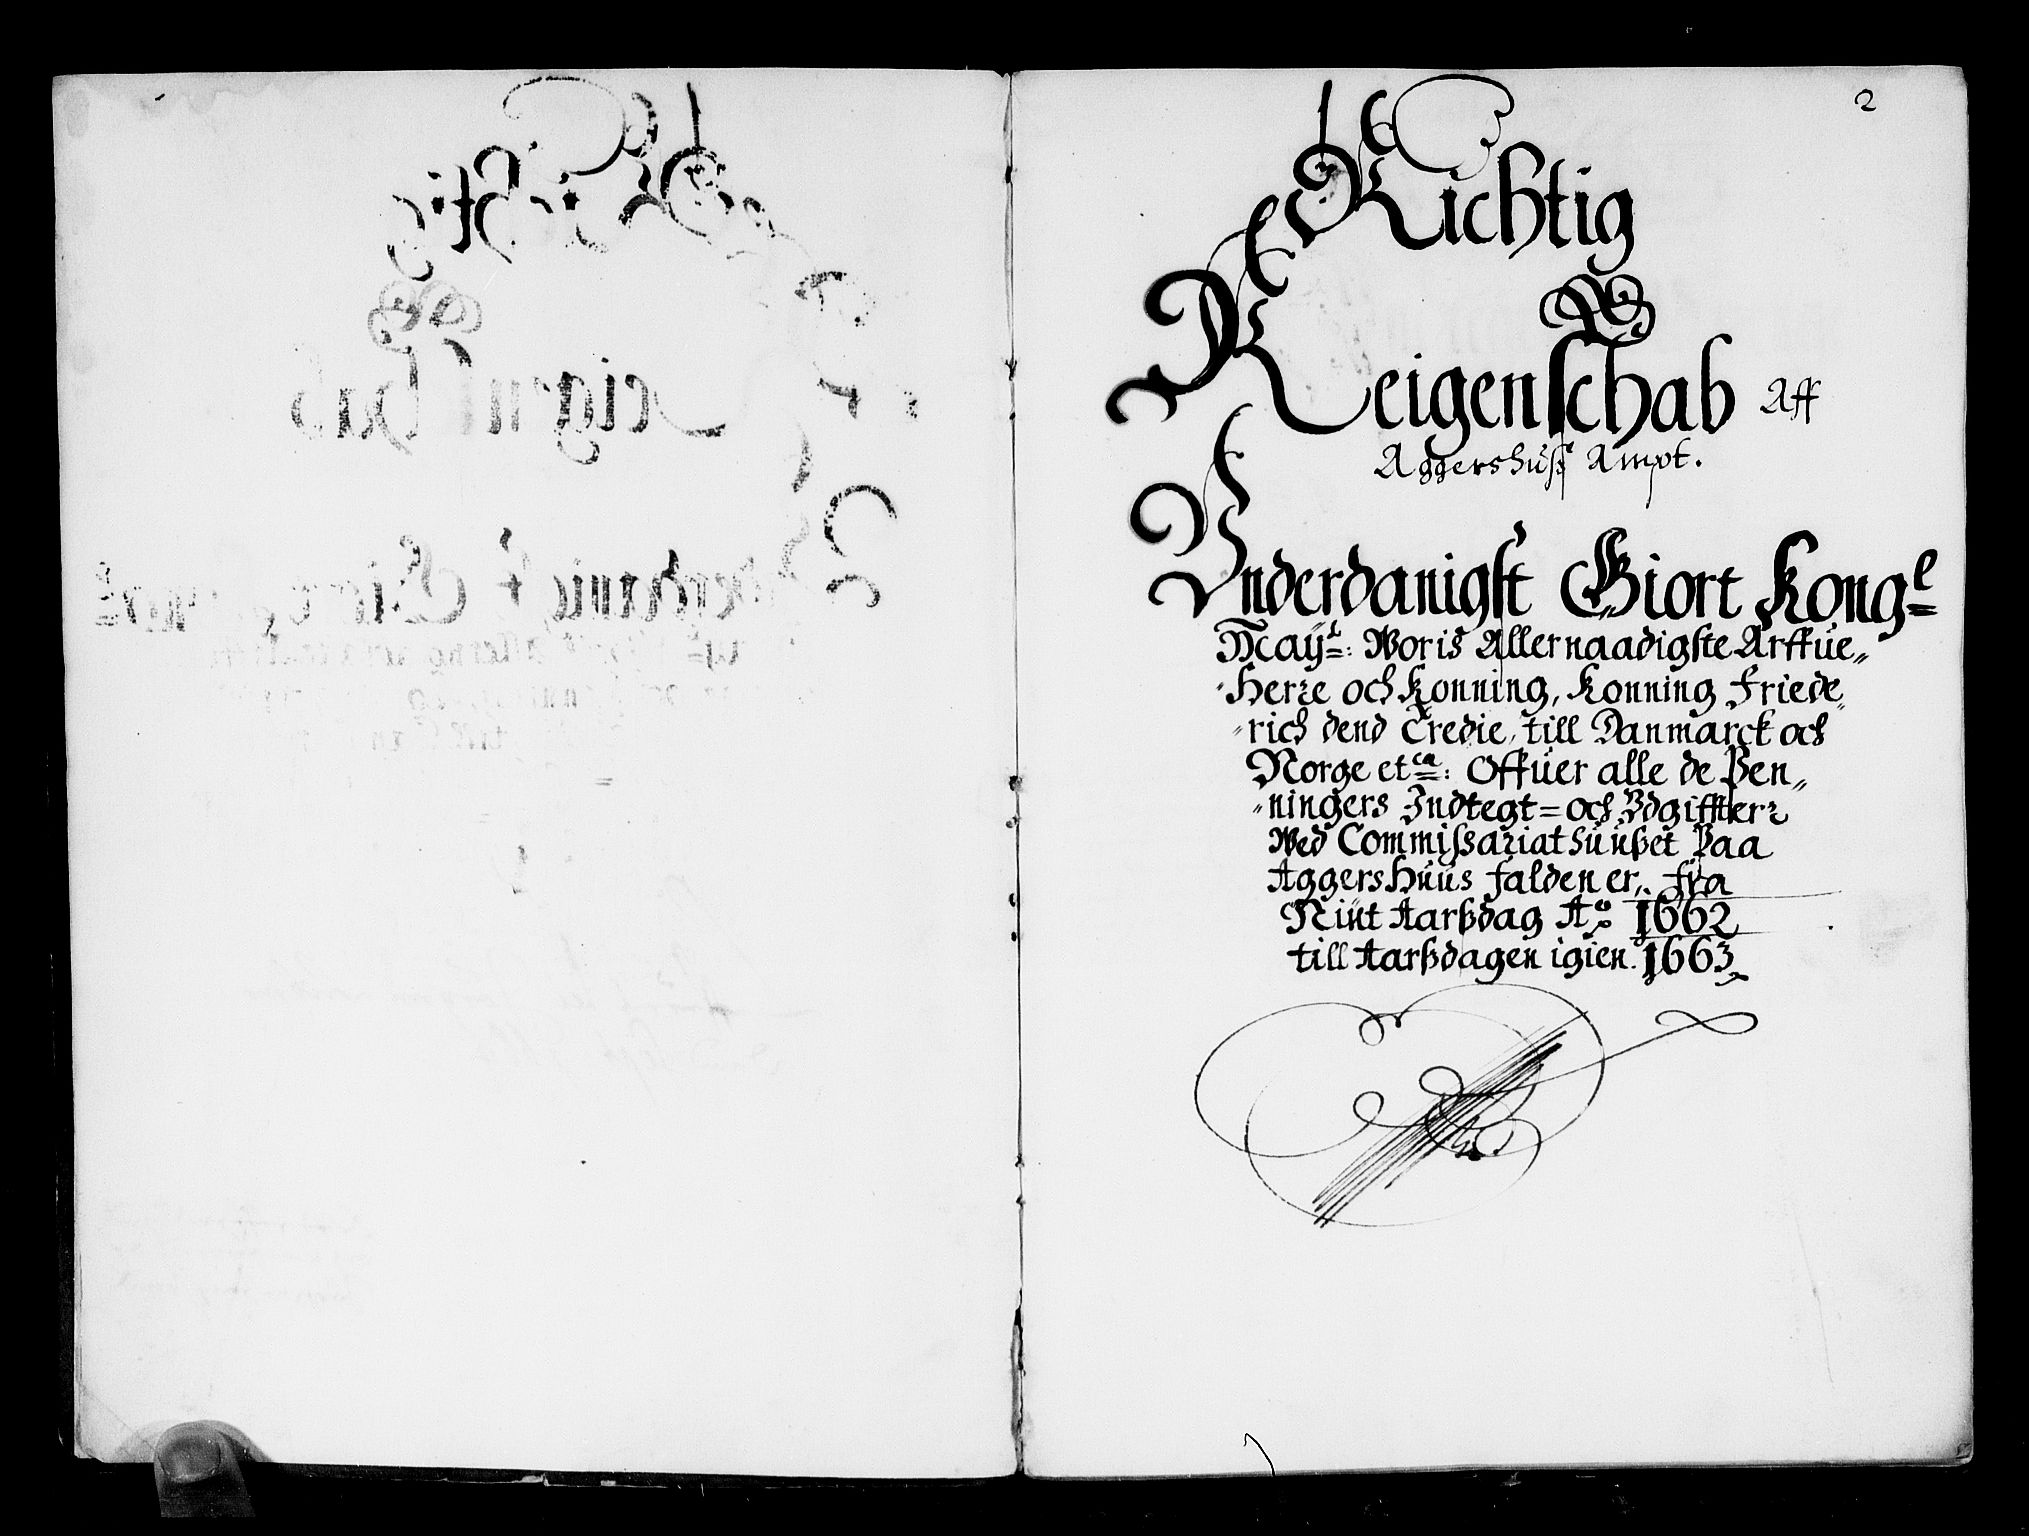 2
Richtig
Reigenschab Aff
Aggershuß Ampt.
Vnderdanigst Giort Kong=l
May=t: Woris Allernaadigste Arffue„
Herre och Konning, Konning Friede„
„rich dend Tredie, till Danmarck och
Norge etca: Offuer alle de Pen„
„ningers Indtegt= och Vdgiffter
Wed Commissariat huußet Paa
Aggershuus falden er, fra
Niüt Aarßdag Ao 1662
till Aarßdagen igien. 1663